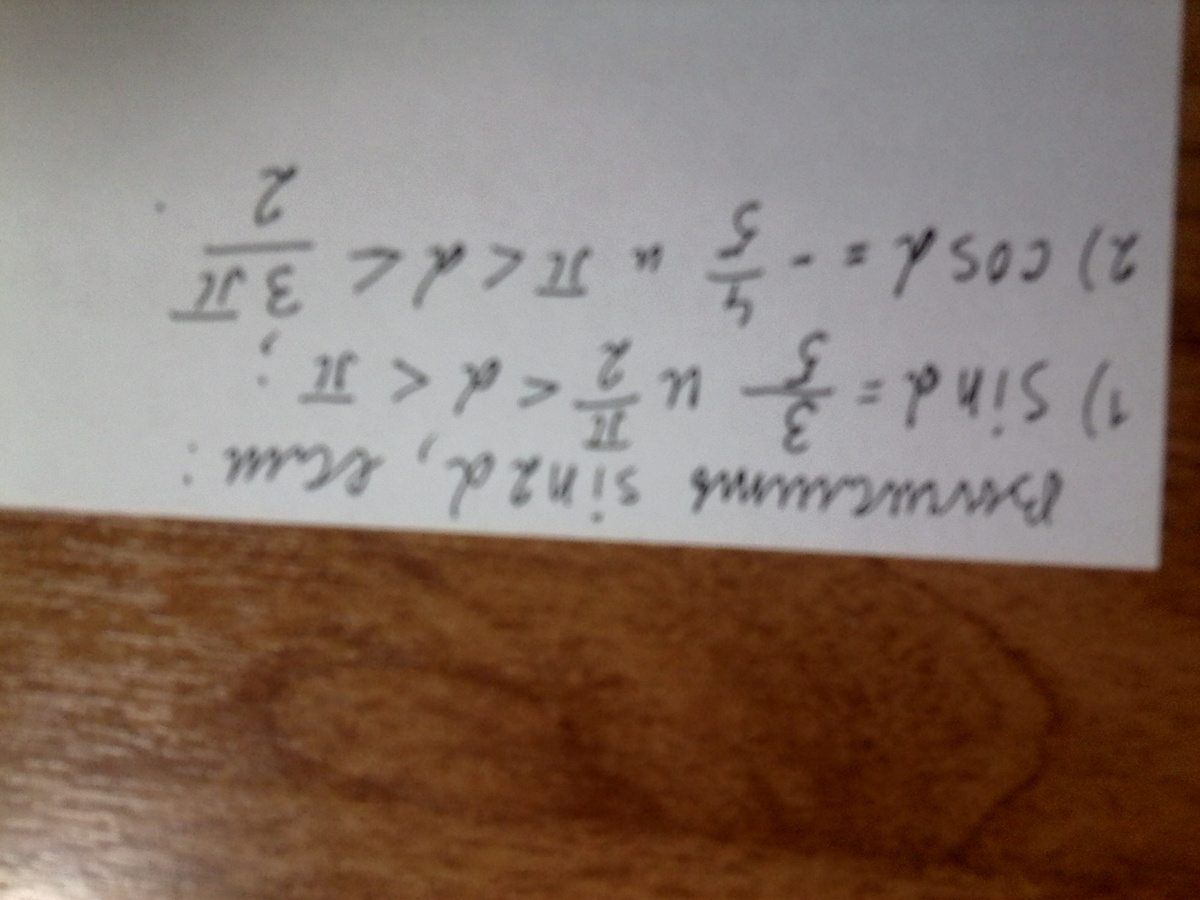 Вычислить sin2α, если:
1) sin α = 3/5 и π/2 < α < π;
2) cos α = - 4/5 и π < α < 3π/2.